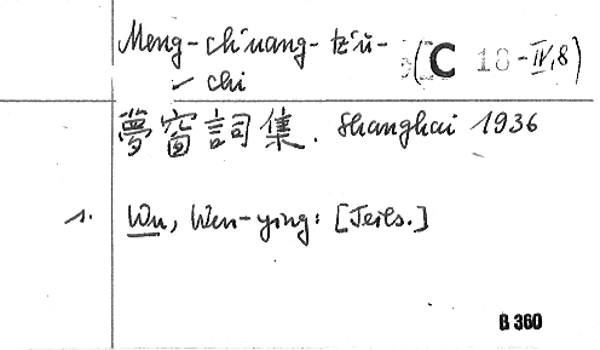 Meng-ch'uang-tz'ŭ-
chi
(C 18-IV,8)
夢窗詞集. Shanghai 1936
1. Wu, Wen-ying: [Teils.]
B 360